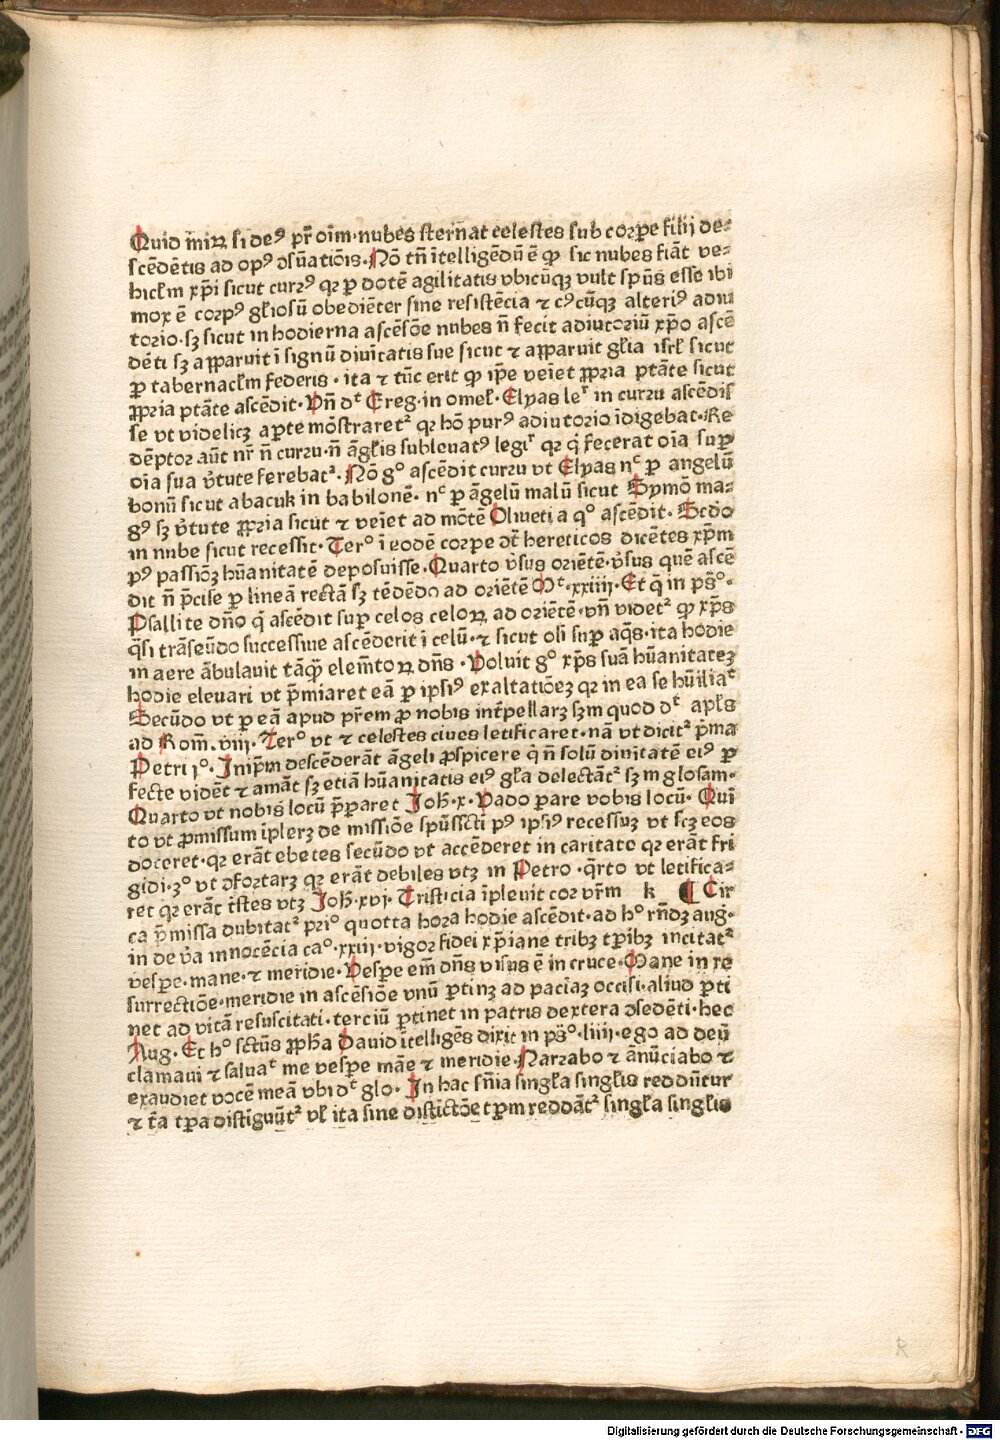 Quid miꝝ si deꝰ pr̄ oīm·nubes sternat celestes sub corpe filij de⸗
scēdētis ad opꝰ ↄſuatiōis·Nō tn̄ ītelligēdū ē ꝙ sic nubes fiāt ve⸗
hicl̄m xp̄i sicut currꝰ qꝛ ꝑ dotē agilitatis vbicūqꝫ vult spūs esse ibi
mox ē corpꝰ gl̄iosū obediēter sine resistēcia ⁊ cꝰcūqꝫ alteriꝰ adiu
torio·sꝫ sicut in hodierna ascēsōe nubes n̄ fecit adiutoriū xp̄o ascē
dēti sꝫ apparuit ī signū diuītatis sue sicut ⁊ apparuit gl̄ia isrl̄ sicut
ꝑ tabernacl̄m federis · ita ⁊ tūc erit ꝙ ip̄e veīet ꝓpria ptāte sicut
ꝓpria ptāte ascēdit·Vn̄ dt Greg·in omel̄·Elyas ler in curru ascēdis
se vt videlicꝫ aperte mōstraretᷣ qꝛ hō purꝰ adiutorio īdigebat·Re
dēptor aūt nr̄ n̄ curru·n̄ āgl̄is subleuatꝰ legiᷣ qꝛ q̄ fecerat oīa suꝑ
oīa sua v̄tute ferebatᷣ·Nō gº ascēdit curru vt Elyas nc ꝑ angelū
bonū sicut abacuk in babilonē· nc ꝑ āgelū malū sicut Symō ma⸗
gꝰ sꝫ v̄tute ꝓpria sicut ⁊ veīet ad mōtē Oliueti a qº ascēdit·Scd̄o
in nube sicut recessit·Terº ī eodē corpe dt̄ hereticos dicētes xp̄m
pꝰ passiōꝫ hūanitatē deposuisse·Quarto v̄sus oriētē·v̄sus quē ascē
dit n̄ p̄cise ꝑ lineā rectā sꝫ tēdēdo ad oriētē Mt·xxiiii·Et q̄ in psº·
Psallite dn̄o q̄ ascēdit suꝑ celos celoꝝ ad oriētē·vn̄ videtᷣ ꝙ xp̄s
q̄si trāseūdo successiue ascēderit ī celū·⁊ sicut oli suꝑ aq̄s·ita hodie
in aere ābulauit tāꝙ̄ elem̄toꝝ dn̄s·Voluit gº xp̄s suā hūanitateꝫ
hodie eleuari vt p̄miaret eā ꝑ ipsiꝰ exaltatiōeꝫ qꝛ in ea se hūiliat
Secūdo vt ꝑ eā apud pr̄em ꝓ nobis int̄pellarꝫ sꝫm quod dt apl̄s
ad Rom̄·viij·Terº vt ⁊ celestes ciues letificaret·nā vt diciᷣ p̄ma
Petri jº·In ip̄m descēderāt āgeli ꝓspicere q̄ n̄ solū diuītatē eiꝰ ꝑ
fecte vidēt ⁊ amāt sꝫ etiā hūanitatis eiꝰ gl̄a delectātᷣ sꝫm glosam·
Quarto vt nobis locū p̄pararet Joh̄·x·Vado parare vobis locū·Quī
to vt ꝓmissum īplerꝫ de missiōe spūsscti pꝰ ipsiꝰ recessuꝫ vt scꝫ eos
doceret·qꝛ erāt ebetes secūdo vt accēderet in caritate qꝛ erāt fri
gidi·3º vt ↄfortarꝫ qꝛ erāt debiles vtꝫ in Petro·q̄rto vt letifica⸗
ret qꝛ erāt t̄stes vtꝫ Joh̄·xvj·Tristicia īpleuit cor vr̄m k ¶ Cir
ca p̄missa dubitatᷣ priº quotta hora hodie ascēdit·ad hº rn̄dꝫ aug·
in de v̄a innocēcia caº·xxiij·vigor fidei xp̄iane tribꝫ tp̄ibꝫ incitatᷣ
vespe·mane·⁊ meridie·Vespe em̄ dn̄s visus ē in cruce·Mane in re
surrectiōe·meridie in ascēsiōe vnū ꝑtinꝫ ad paciaꝫ occisi·aliud ꝑti
net ad vitā resuscitati·terciū ꝑtinet in patris dextera ↄsedēti·hec
Aug·Et hº sctūs ꝓph̄a Dauid ītelligēs dixit in psº·liiij·ego ad deū
clamaui ⁊ saluat me vespe māe ⁊ meridie·Narrabo ⁊ ānūciabo ⁊
exaudiet vocē meā vbi dt glo·In hac sn̄ia singl̄a singl̄is reddūtur
⁊ t̄a tp̄a distiguūtᷣ vl̄ ita sine distictōe tp̄m reddātᷣ singl̄a singl̄is
R
Digitalisierung gefördert durch die Deutsche Forschungsgemeinschaft - DFG